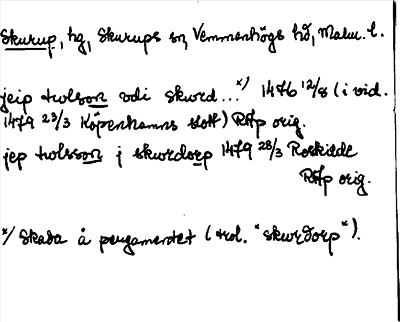 Skurup, hg, Skurups sn Vemmenhögs hd, Malm. l.
jeip trolson vdi skurd...x) 1476 12/8 (i vid.
1479 23/3 Köpenhamns slott) RAp orig.
jep trolsson j skurdorp 1479 28/3 Roskilde
RAp orig.
x/ Skada å pergamentet (trol. "skurdorp").